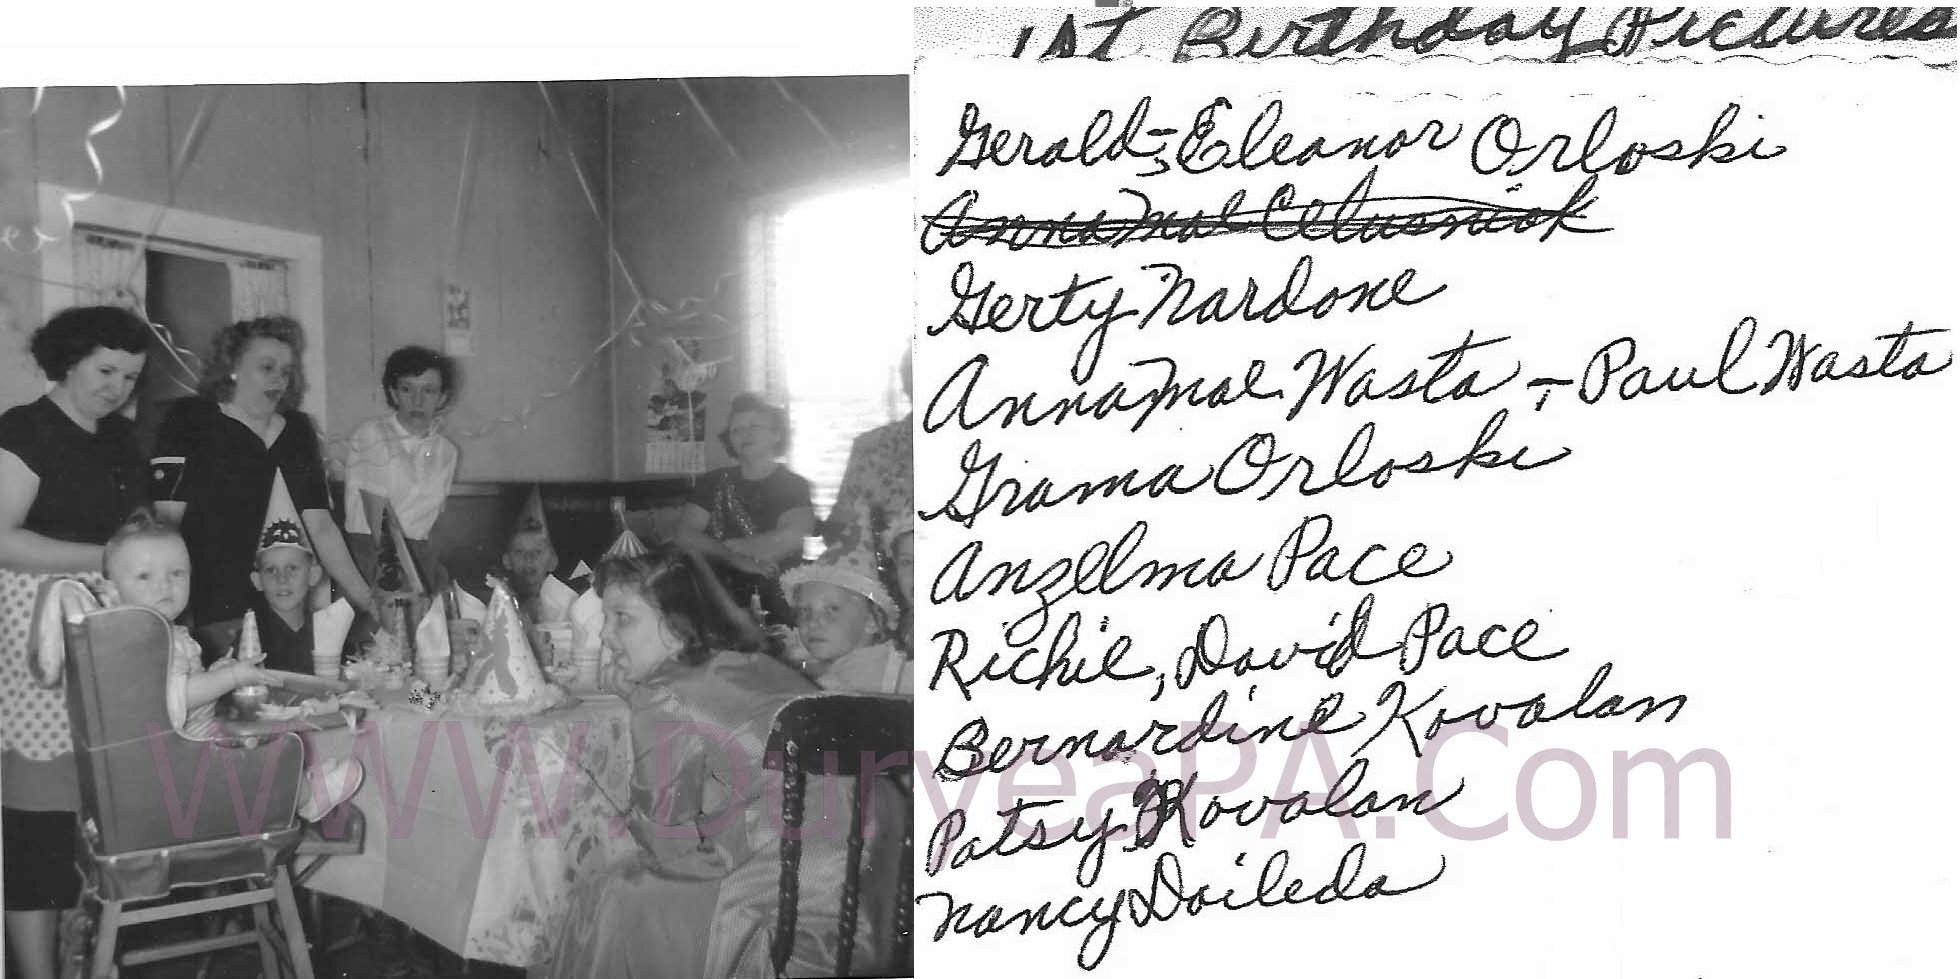 1st Birthday Pictures
Gerald & Eleanor Orloski
Anna Mae
Gerty Nardone
Anna Mae Wasta & Paul Wasta
Grama Orloski
Anzelma Pace
Richie, David Pace
Bernardine Kovalan
Patsy Kovalan
Nancy Doileda
WWW.DuryeaPA.Com